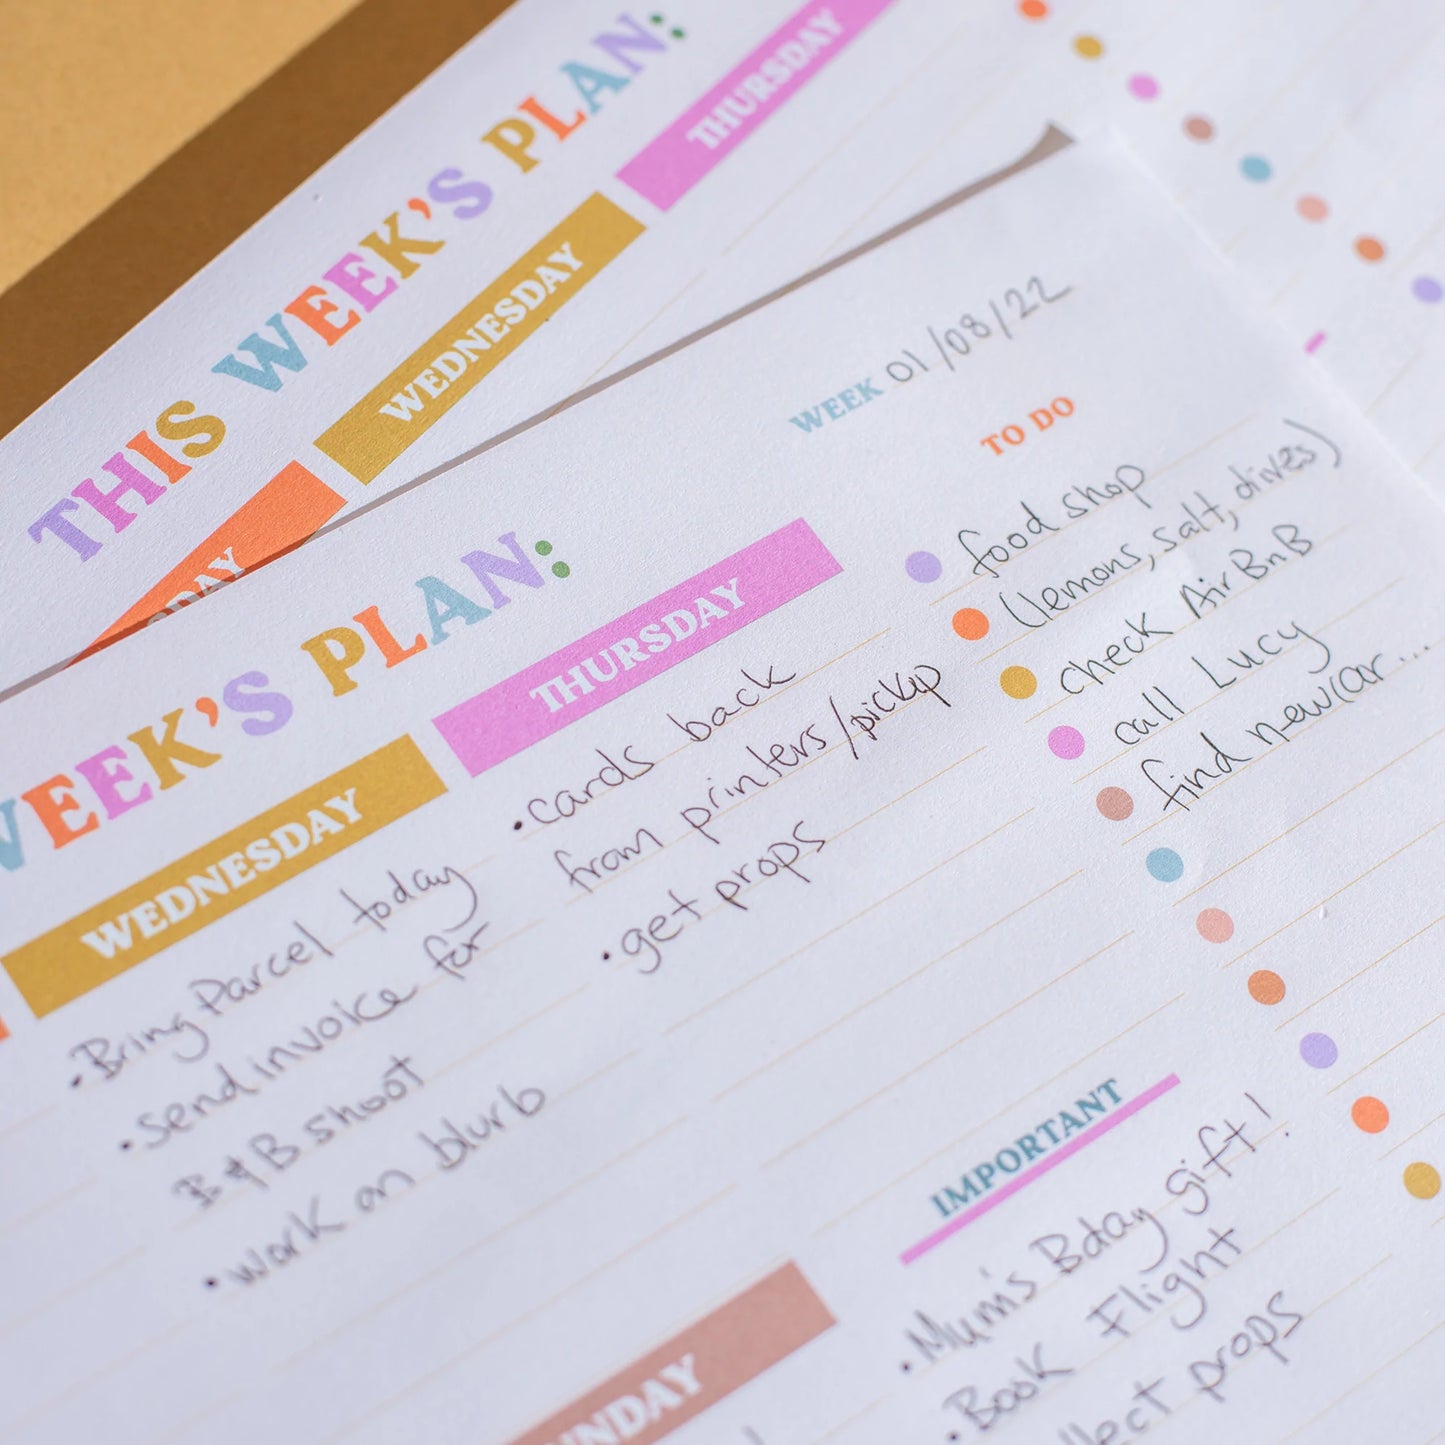 THIS WEEK'S PLAN:
THURSDAY
WEDNESDAY
WEEK 01/08/22
TO DO
food shop
(lemons, salt, olives)
check AirBnB
call Lucy
find new car...
WEEK'S PLAN:
THURSDAY
• cards back
from printers/pickup
• get props
WEDNESDAY
• Bring Parcel today
• send invoice for
B & B shoot
• work on blurb
IMPORTANT
• Mum's Bday gift!
• Book Flight
props